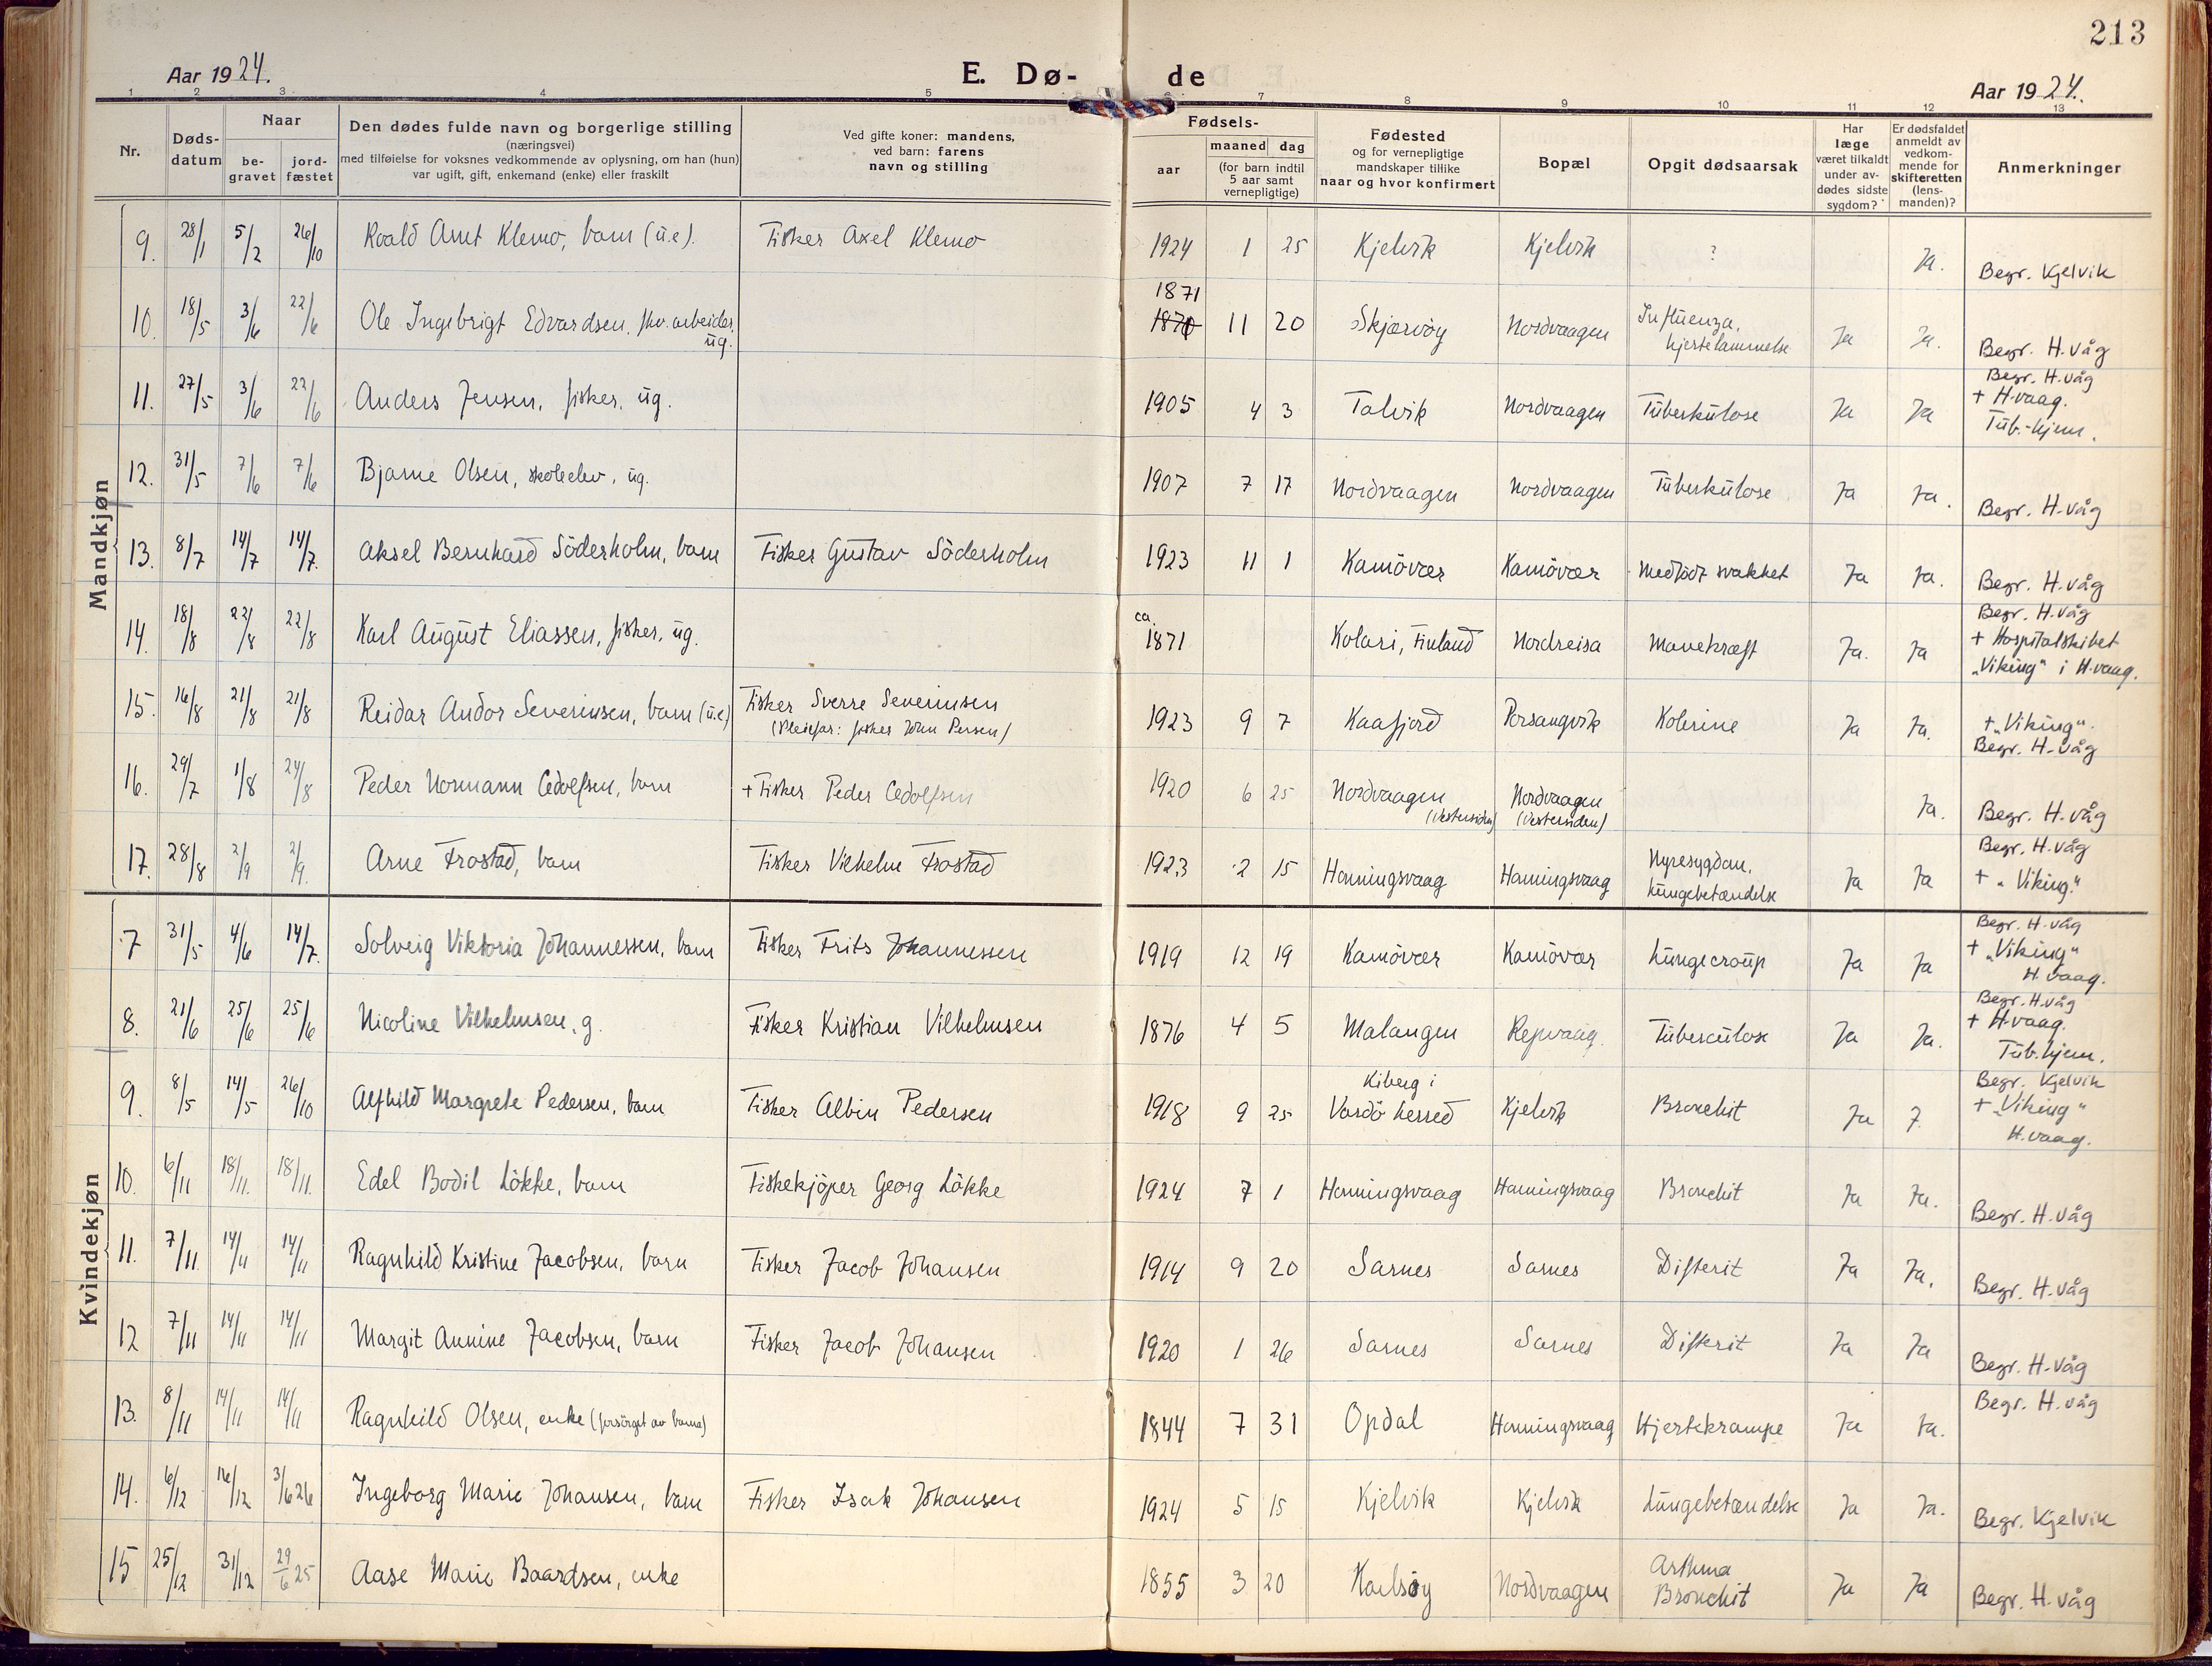 213
Aar 1924.
E. Dø-
de
Aar 1924.
1 2 3 4 5 6 7 8 9 10 11 12 13
Nr.
Døds-datum
Naar
be-gravet
jord-fæstet
Den dødes fulde navn og borgerlige stilling
(næringsvei)
med tilføielse for voksnes vedkommende av oplysning, om han (hun)
var ugift, gift, enkemand (enke) eller fraskilt
Ved gifte koner: mandens,
ved barn: farens
navn og stilling
Fødsels-
aar
maaned dag
(for barn indtil
5 aar samt
vernepligtige)
Fødested
og for vernepligtige
mandskaper tillike
naar og hvor konfirmert
Bopæl
Opgit dødsaarsak
Har
læge
været tilkaldt
under av-
dødes sidste
sygdom?
Er dødsfaldet
anmeldt av
vedkom-
mende for
skifteretten
(lens-
manden)?
Anmerkninger
Mandkjøn
9. 28/1 5/2 26/10 Roald Arnt Klemo, barn (u.e). Fisker Axel Klemo 1924 1 25 Kjelvik Kjelvik ? Ja. Begr. Kjelvik
10. 18/5 3/6 22/6 Ole Ingebrigt Edvardsen, arbeider, ug. 1871 1870 11 20 Skjærvöy Nordvaagen Influenza, hjertelammelse Ja Ja. Begr. H.våg
11. 27/5 3/6 22/6 Anders Jensen, fisker, ug. 1905 4 3 Talvik Nordvaagen Tuberkulose Ja Ja Begr. H.våg + H.vaag. Tub.-hjem.
12. 31/5 7/6 7/6 Bjarne Olsen, skoleelev, ug. 1907 7 17 Nordvaagen Nordvaagen Tuberkulose Ja Ja. Begr. H.våg
13. 8/7 14/7 14/7. Aksel Bernhard Söderholm, barn Fisker Gustav Söderholm 1923 11 1 Kamövær Kamövær Medfödt svakhet Ja Ja. Begr. H.våg
14. 18/8 22/8 22/8 Karl August Eliassen, fisker, ug. ca. 1871 Kolari, Finland Nordreisa Mavekræft Ja. Ja Begr. H.våg + Hospitalskibet „Viking" i H.vaag.
15. 16/8 21/8 21/8 Reidar Andor Severinsen, barn (u.e) Fisker Sverre Severinsen (Pleiefar: fisker John Persen) 1923 9 7 Kaafjord Porsangvik Kolerine Ja Ja. + „Viking". Begr. H.våg
16. 29/7 1/8 24/8 Peder Normann Cedolfsen, barn + Fisker Peder Cedolfsen 1920 6 25 Nordvaagen (Vestersiden) Nordvaagen (Vestersiden) Ja. Begr. H.våg
17. 28/8 2/9 2/9. Arne Frostad, barn Fisker Vilhelm Frostad 1923 2 15 Honningsvaag Honningsvaag Nyresygdom, lungebetændelse Ja Ja Begr. H.våg + „Viking."
Kvindekjøn
7 31/5 4/6 14/7. Solveig Viktoria Johannessen, barn Fisker Frits Johannessen 1919 12 19 Kamövær Kamövær Lungecroup Ja Ja Begr. H.våg + „Viking" H.vaag.
8. 21/6 25/6 25/6 Nicoline Vilhelmsen, g. Fisker Kristian Vilhelmsen 1876 4 5 Malangen Repvaag. Tuberculose Ja Ja. Begr. H.våg + H.vaag. Tub.hjem.
9. 8/5 14/5 26/10 Alfhild Margrete Pedersen, barn Fisker Albin Pedersen 1918 9 25 Kiberg i Vardö herred Kjelvik Bronchit Ja J. Begr. Kjelvik + „Viking" H.vaag.
10. 6/11 18/11. 18/11. Edel Bodil Lökke, barn Fiskekjöper Georg Lökke 1924 7 1 Honningsvaag Honningsvaag Bronchit Ja Ja. Begr. H.våg
11. 7/11. 14/11 14/11 Ragnhild Kristine Jacobsen, barn Fisker Jacob Johansen 1914 9 20 Sarnes Sarnes Difterit Ja Ja. Begr. H.våg
12 7/11 14/11 14/11 Margit Annine Jacobsen, barn Fisker Jacob Johansen 1920 1 26 Sarnes Sarnes Difterit Ja Ja Begr. H.våg
13. 8/11 14/11 14/11 Ragnhild Olsen, enke (forsörget av barna) 1844 7 31 Opdal Honningsvaag Hjertekrampe Ja Ja. Begr. H.våg
14. 6/12 16/12 3/6 26 Ingeborg Marie Johansen, barn Fisker Isak Johansen 1924 5 15 Kjelvik Kjelvik Lungebetændelse Ja Ja. Begr. Kjelvik
15 25/12 31/12 29/6 25 Aase Marie Baardsen, enke 1855 3 20 Karlsöy Nordvaagen Asthma Bronchit Ja Ja Begr. H.våg